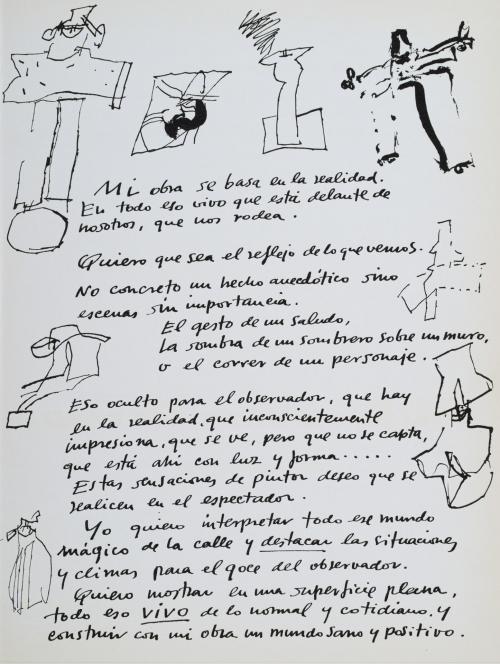 Mi obra se basa en la realidad.
En todo eso vivo que está delante de
nosotros, que nos rodea.
Quiero que sea el reflejo de lo que vemos.
No concreto un hecho anecdótico sino
escenas sin importancia.
El gesto de un saludo,
la sombra de un sombrero sobre un muro,
o el correr de un personaje.
Eso oculto para el observador, que hay
en la realidad, que inconscientemente
impresiona, que se ve, pero que no se capta,
que está ahi con luz y forma.....
Estas sensaciones de pintor deseo que se
realicen en el espectador.
Yo quiero interpretar todo ese mundo
mágico de la calle y destacar las situaciones
y climas para el goce del observador.
Quiero mostrar en una superficie plana,
todo eso VIVO de lo normal y cotidiano. y
construir con mi obra un mundo sano y positivo.